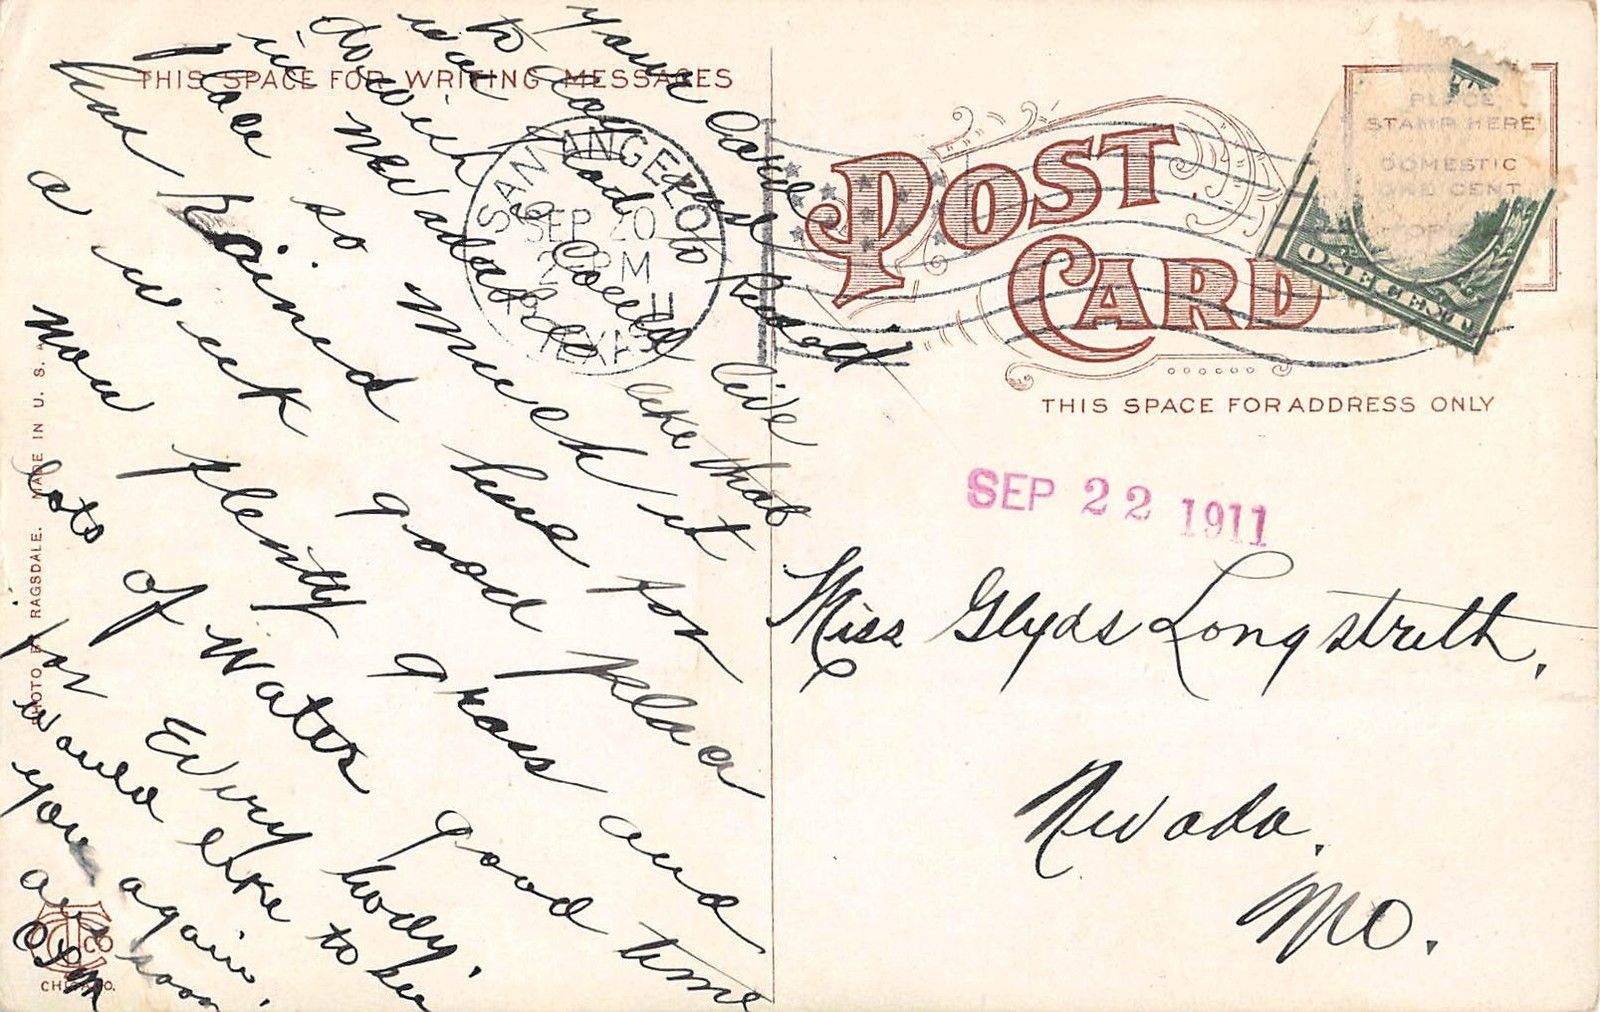 THIS SPACE FOR WRITING MESSAGES
Your Card
to day
was glad to
do wish I Could live
in Nevada like that
place so much it
has Rained here for
a week good place
now plenty grass and
lots of Water good time
for Every body.
would like to see
you again.
ans soon
PHOTO BY RAGSDALE. MADE IN U. S. A.
CTCO
CHICAGO.
SAN ANGELO
SEP 20
2 PM
1911
TEXAS
POST
CARD
PLACE
STAMP HERE
DOMESTIC
ONE CENT
ONE CENT
THIS SPACE FOR ADDRESS ONLY
SEP 22 1911
Miss Glyds Longstreth.
Nevada.
Mo.